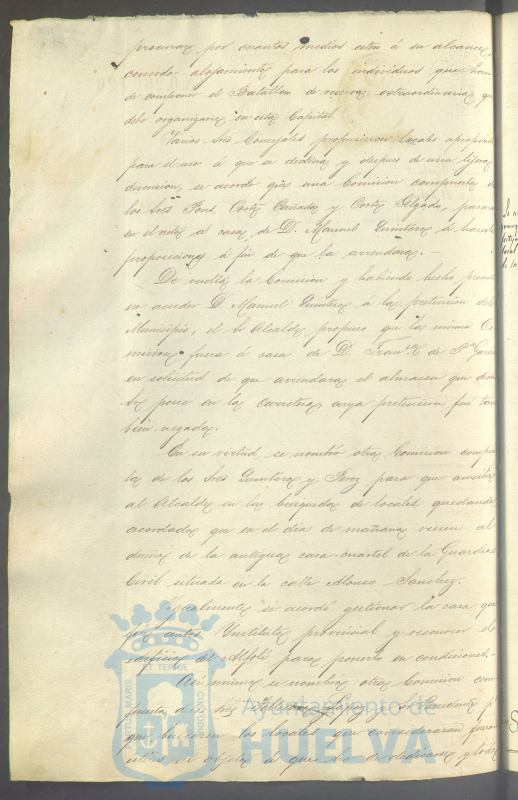 procurar por cuantos medios estén á su alcance,
comodo alojamiento para los individuos que han
de componer el Batallon de reserva extraordinaria q
debe organizarse en esta Capital.
Varios Sres Concejales propusieron locales apropósito
para el uso á que se destina y despues de una lijera
discusion, se acordo que una Comision compuesta de
los Sres Pons, Cortes Cañada y Cortes Delgado, pasara
en el acto á casa de D. Manuel Quintero á hacerle
proposiciones á fin de que la arrendara.—
De vuelta la Comision y habiendo hecho presente
no acceder D. Manuel Quintero á la pretencion del
Municipio, el Sr Alcalde propuso que la misma Co
mision fuera á casa de D. Franco de Pa Garcia
en solicitud de que arrendara el almacen que dicho
Sr posee en la carretera, cuya pretencion fué tam
bien negada.
En su virtud se nombró otra Comision compues
ta de los Sres Quintero y Perez para que auxilie
al Alcalde en la busqueda de locales, quedando
acordado que en el dia de mañana vieran al
dueño de la antigua casa-cuartel de la Guardia
Civil situada en la calle Alonso Sanchez.
Igualmente se acordó gestionar la casa que
fué antes Instituto provincial y reconocer el
edificio del Alfolí para ponerlo en condiciones.-
Asi mismo se nombró otra Comision com
puesta de los Sres y el Presidente p
que busquen los locales que consideraran fueran
utiles al objeto á que ha de dedicarse y todo
Ayuntamiento de
HUELVA
PORTUS MARIS
ET TERRÆ
CUSTODIA